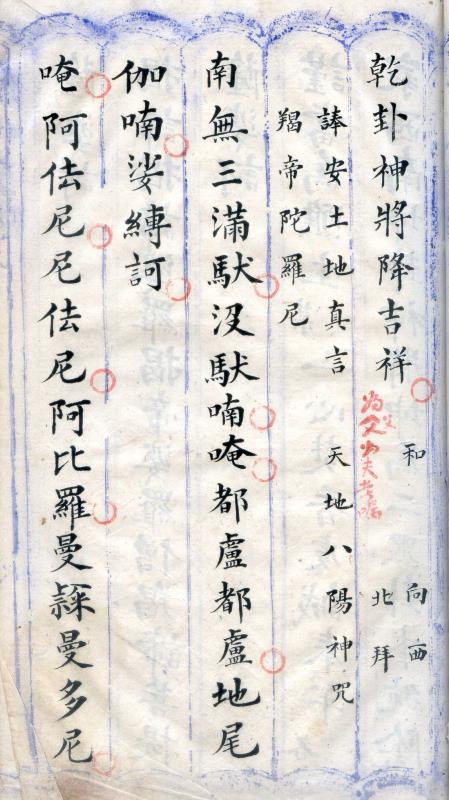 乾卦神將降吉祥
和 向西
北拜
誦安土地真言 天地八陽神咒
羯帝陀羅尼
南無三滿馱沒馱喃唵都盧都盧地尾
伽喃娑縛訶
唵阿佉尼尼佉尼阿比羅曼隸曼多尼